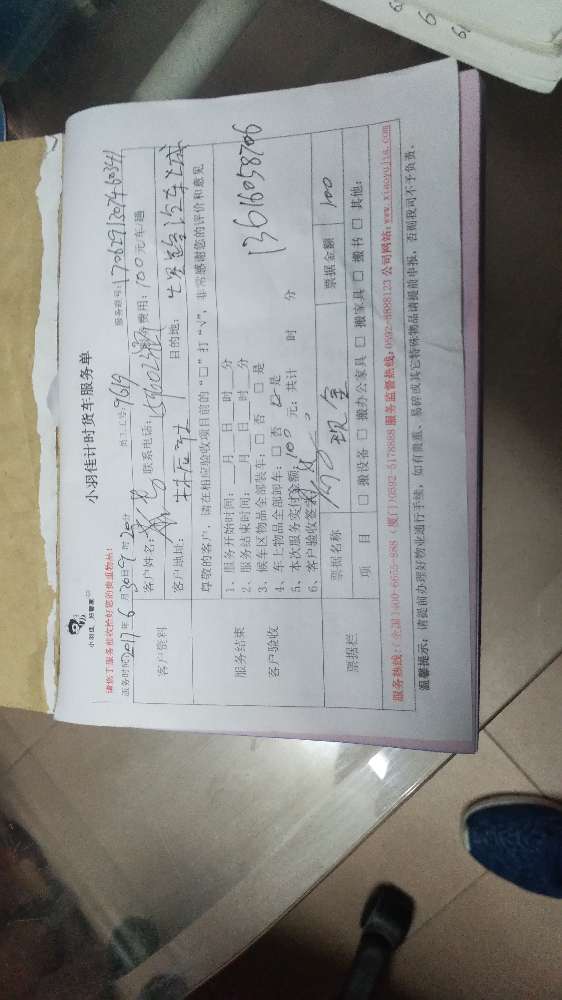 小羽佳·好管家
小羽佳计时货车服务单
请务丁服务前收拾好您的贵重物品!
服务时间2017年6月30日9时20分
员工工号:9619
服务单号:
客户资料
客户姓名:
联系电话:
费用:100元/车/趟
客户地址:
目的地:
尊敬的客户,请在相应验收项目前的"□"打"√",非常感谢您的评价和意见
服务结束
客户验收
1、服务开始时间: 月 日 时 分
2、服务结束时间: 月 日 时 分
3、候车区物品全部装车:□ 否 □ 是
4、车上物品全部卸车:□ 否 ☑ 是
5、本次服务实付金额:100 元;共计 时 分
6、客户验收签名:
13616058706
票据栏
票据名称
现金
票据金额
100
项 目
□ 搬设备 □ 搬办公家具 □ 搬家具 □ 搬书 □ 其他:
服务热线:(全国)400-6655-888 (厦门)0592-5178888 服务监督热线:0592-8888123 公司网站:www.xiaoyujia.com
温馨提示:请提前办理好物业通行手续,如有贵重、易碎或其它特殊物品请提前申报,否则我司不予负责。